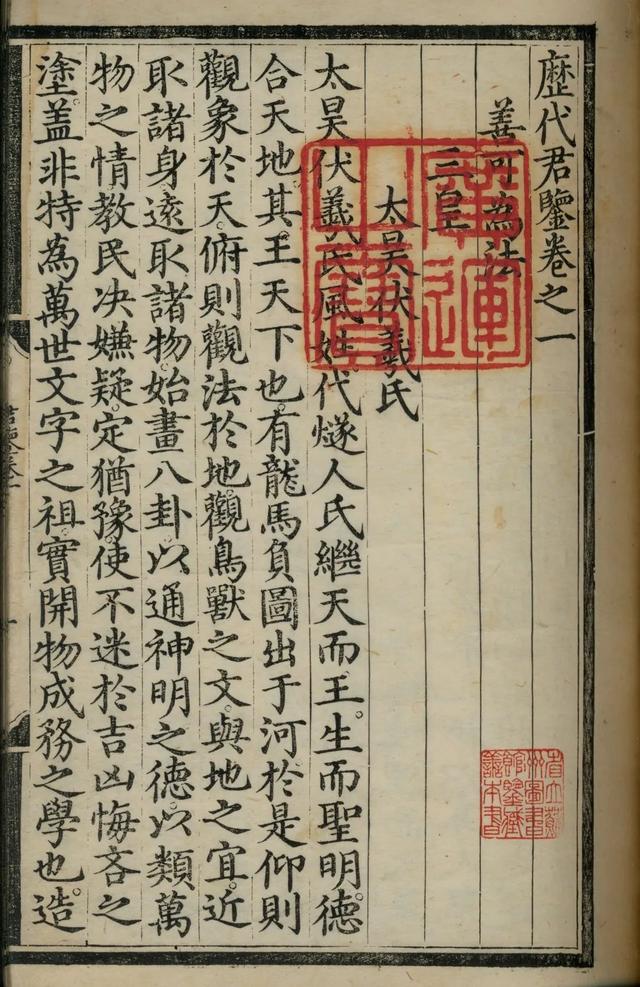 歷代君鑒卷之一
善可為法
三皇
太昊伏羲氏
太昊伏羲氏風姓代燧人氏繼天而王。生而聖明。德
合天地。其王天下也。有龍馬負圖出于河。於是仰則
觀象於天。俯則觀法於地。觀鳥獸之文。與地之宜。近
取諸身。遠取諸物。始畫八卦。以通神明之德。以類萬
物之情。教民决嫌疑。定猶豫。使不迷於吉凶悔吝之
塗。盖非特為萬世文字之祖。實開物成務之學也。造
廣運之寶
省立蘇州圖書館鑒藏善本書